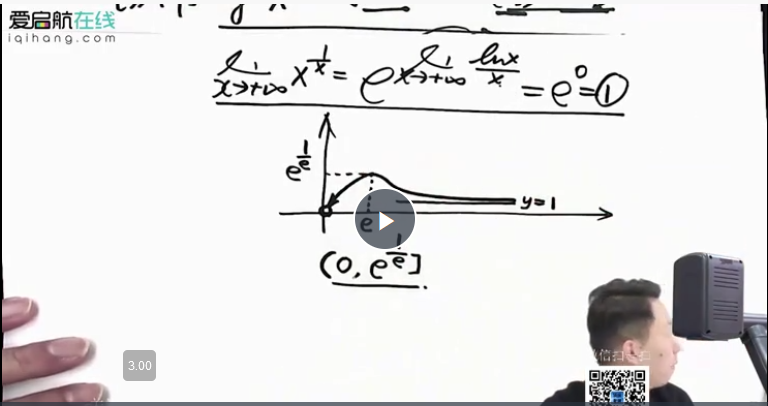 爱启航在线
iqihang.com
lim x→+∞ x^(1/x) = e^(lim x→+∞ lnx/x) = e^0 = ①
e^(1/e)
y=1
e
(0, e^(1/e)]
3.00